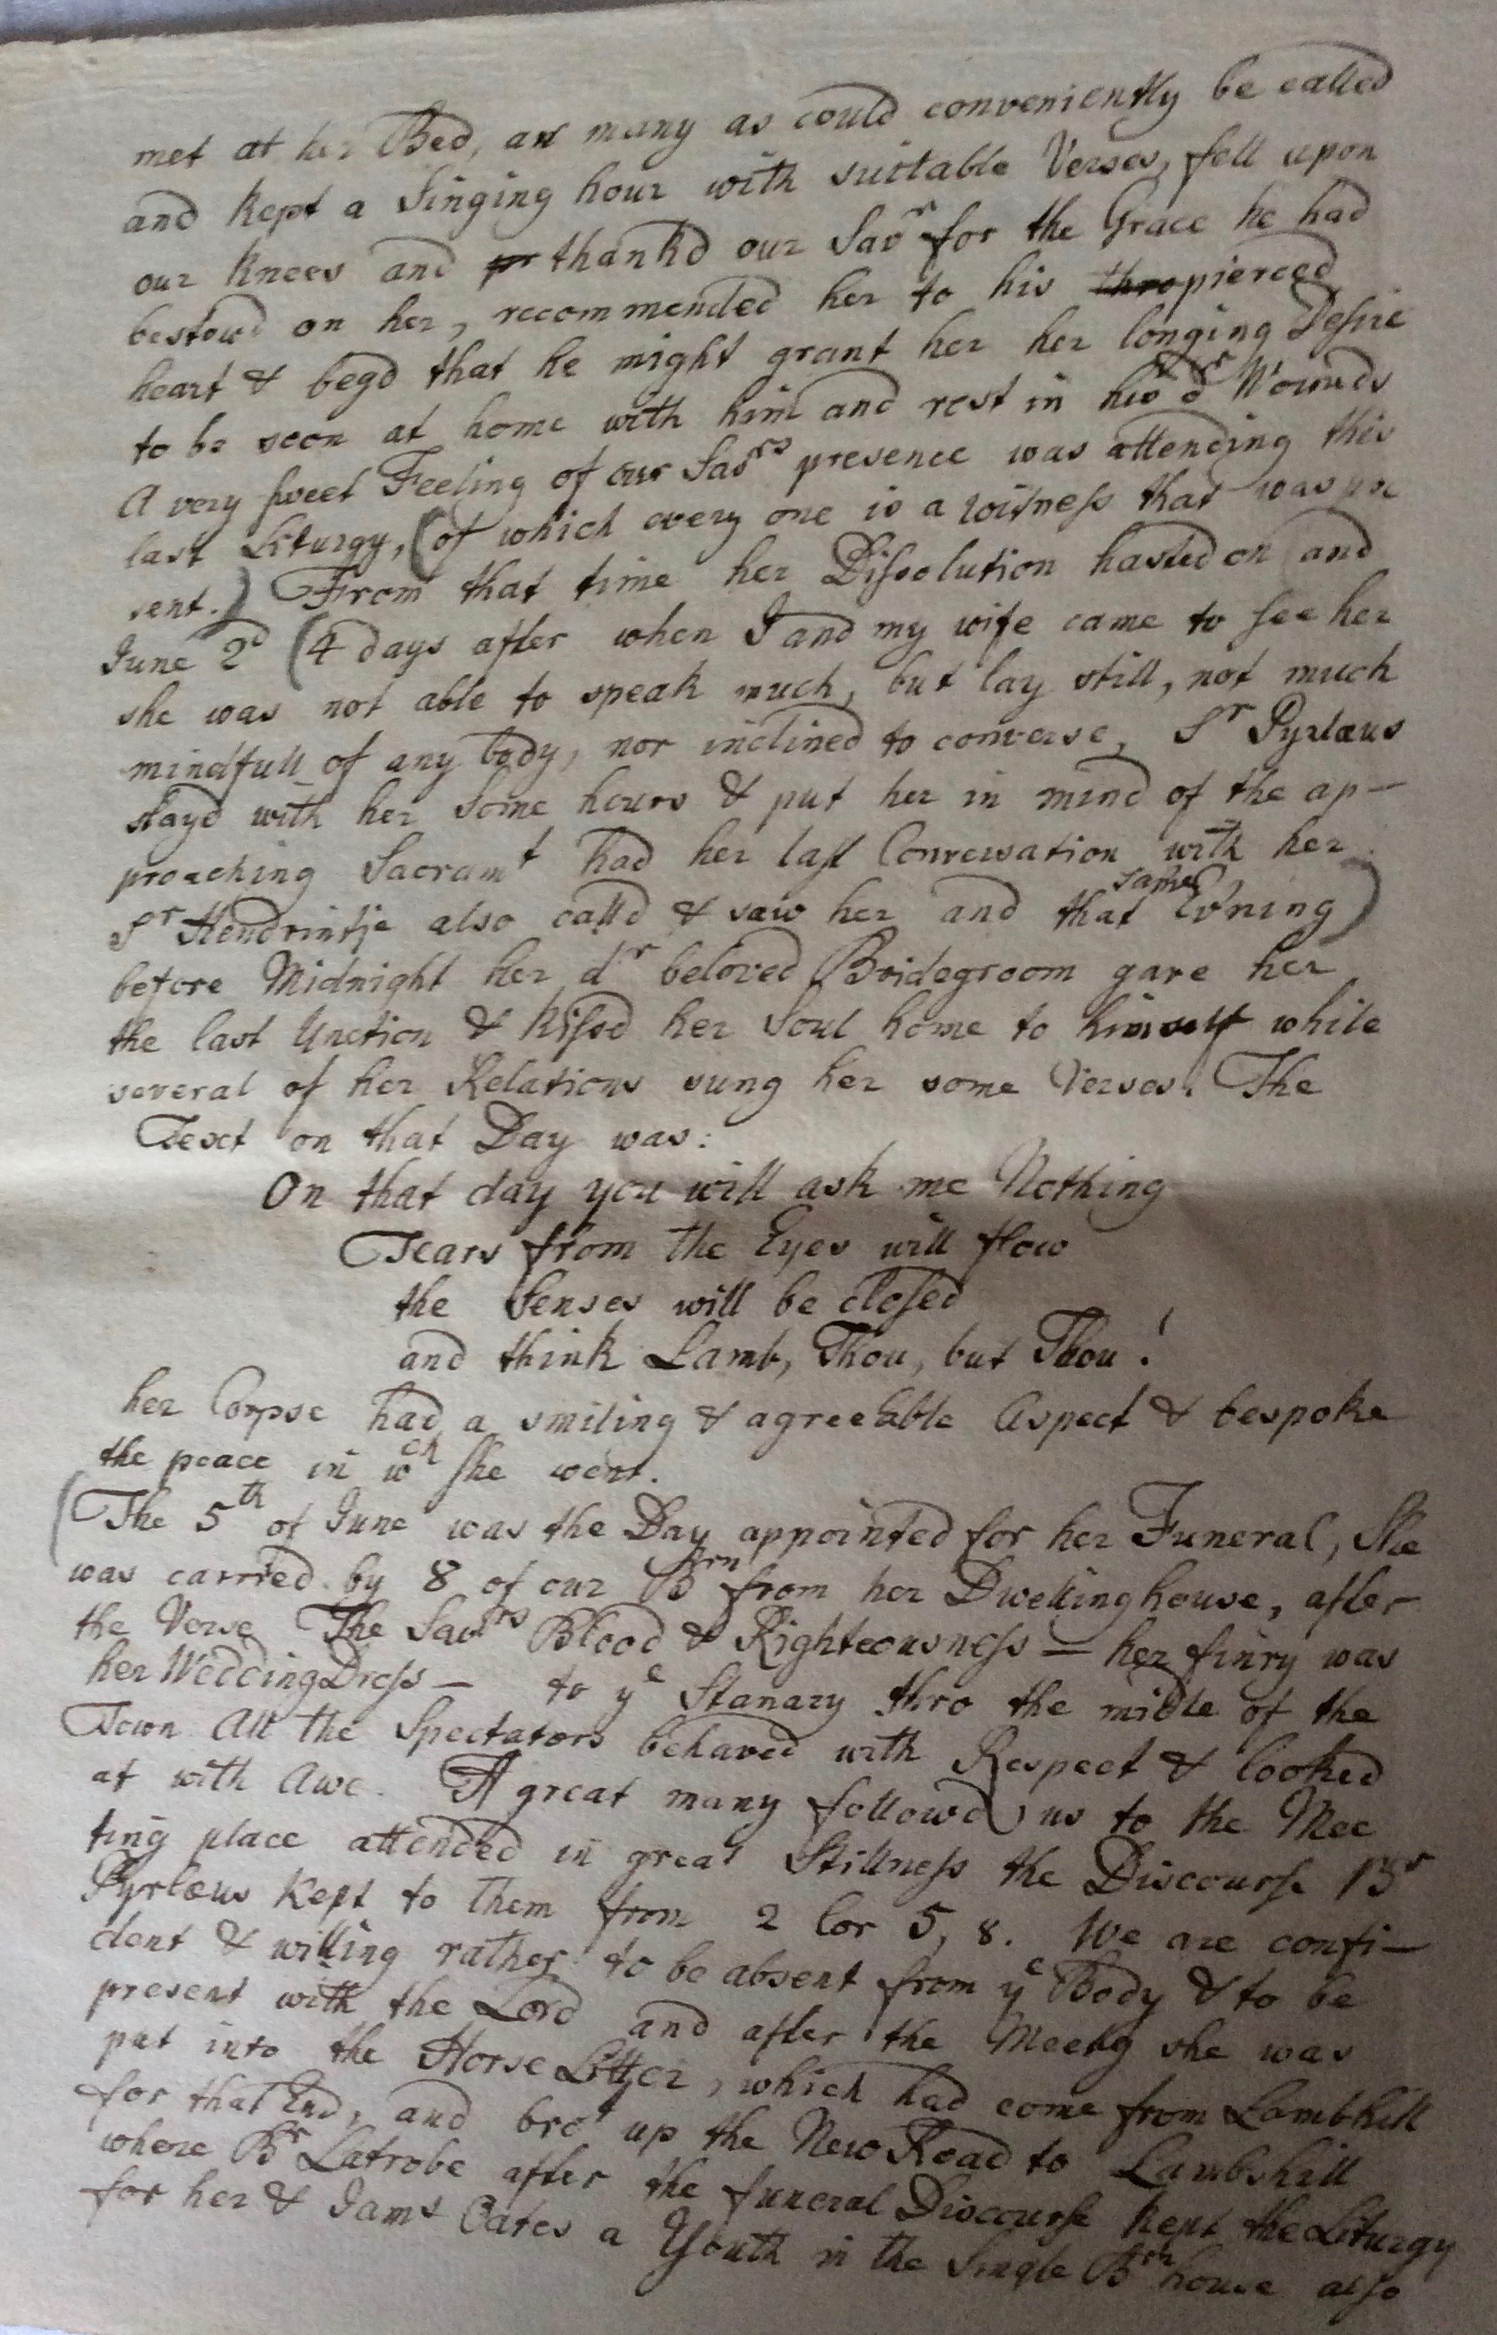 met at her Bed, as many as could conveniently be called
and kept a Singing hour with suitable Verses, fell upon
our knees and pr thankd our Savr for the Grace he had
bestowd on her, recommended her to his thro pierced
heart & begd that he might grant her her longing Desire
to be soon at home with him and rest in his dr Wounds
A very sweet Feeling of our Savrs presence was attending this
last Liturgy, (of which every one is a witness that was pre
sent.) From that time her Dissolution hasted on and
June 2d (4 days after when I and my wife came to see her
she was not able to speak much, but lay still, not much
mindfull of any body, nor inclined to converse, Sr Pyrlæus
stayd with her some hours & put her in mind of the ap-
proaching Sacramt had her last Conversation with her
Sr Hendrintje also calld & saw her and that same Evning)
before Midnight her dr beloved Bridegroom gave her
the last Unction & kissd her Soul home to himself while
several of her Relations sung her some Verses. The
Text on that Day was:
On that day you will ask me Nothing
Tears from the Eyes will flow
the Senses will be closed
and think Lamb, Thou, but Thou!
her Corpse had a smiling & agreeable Aspect & bespoke
the peace in wch she went.
(The 5th of June was the Day appointed for her Funeral, She
was carried by 8 of our Brn from her Dwellinghouse, after
the Verse The Savrs Blood & Righteousness – her finry was
her Wedding Dress – to ye Stanary thro the midle of the
Town All the Spectators behaved with Respect & looked
at with Awe. A great many followd us to the Mee
ting place attended in great Stillness the Discourse Br
Pyrlæus kept to them from 2 Cor 5, 8. We are confi-
dent & willing rather to be absent from ye Body & to be
present with the Lord and after the Meetg she was
put into the Horse Litter, which had come from Lambhill
for that End, and brot up the New Road to Lambshill
where Br Latrobe after the funeral Discourse kept the Liturgy
for her & Jams Oates a Youth in the Single Brn house also